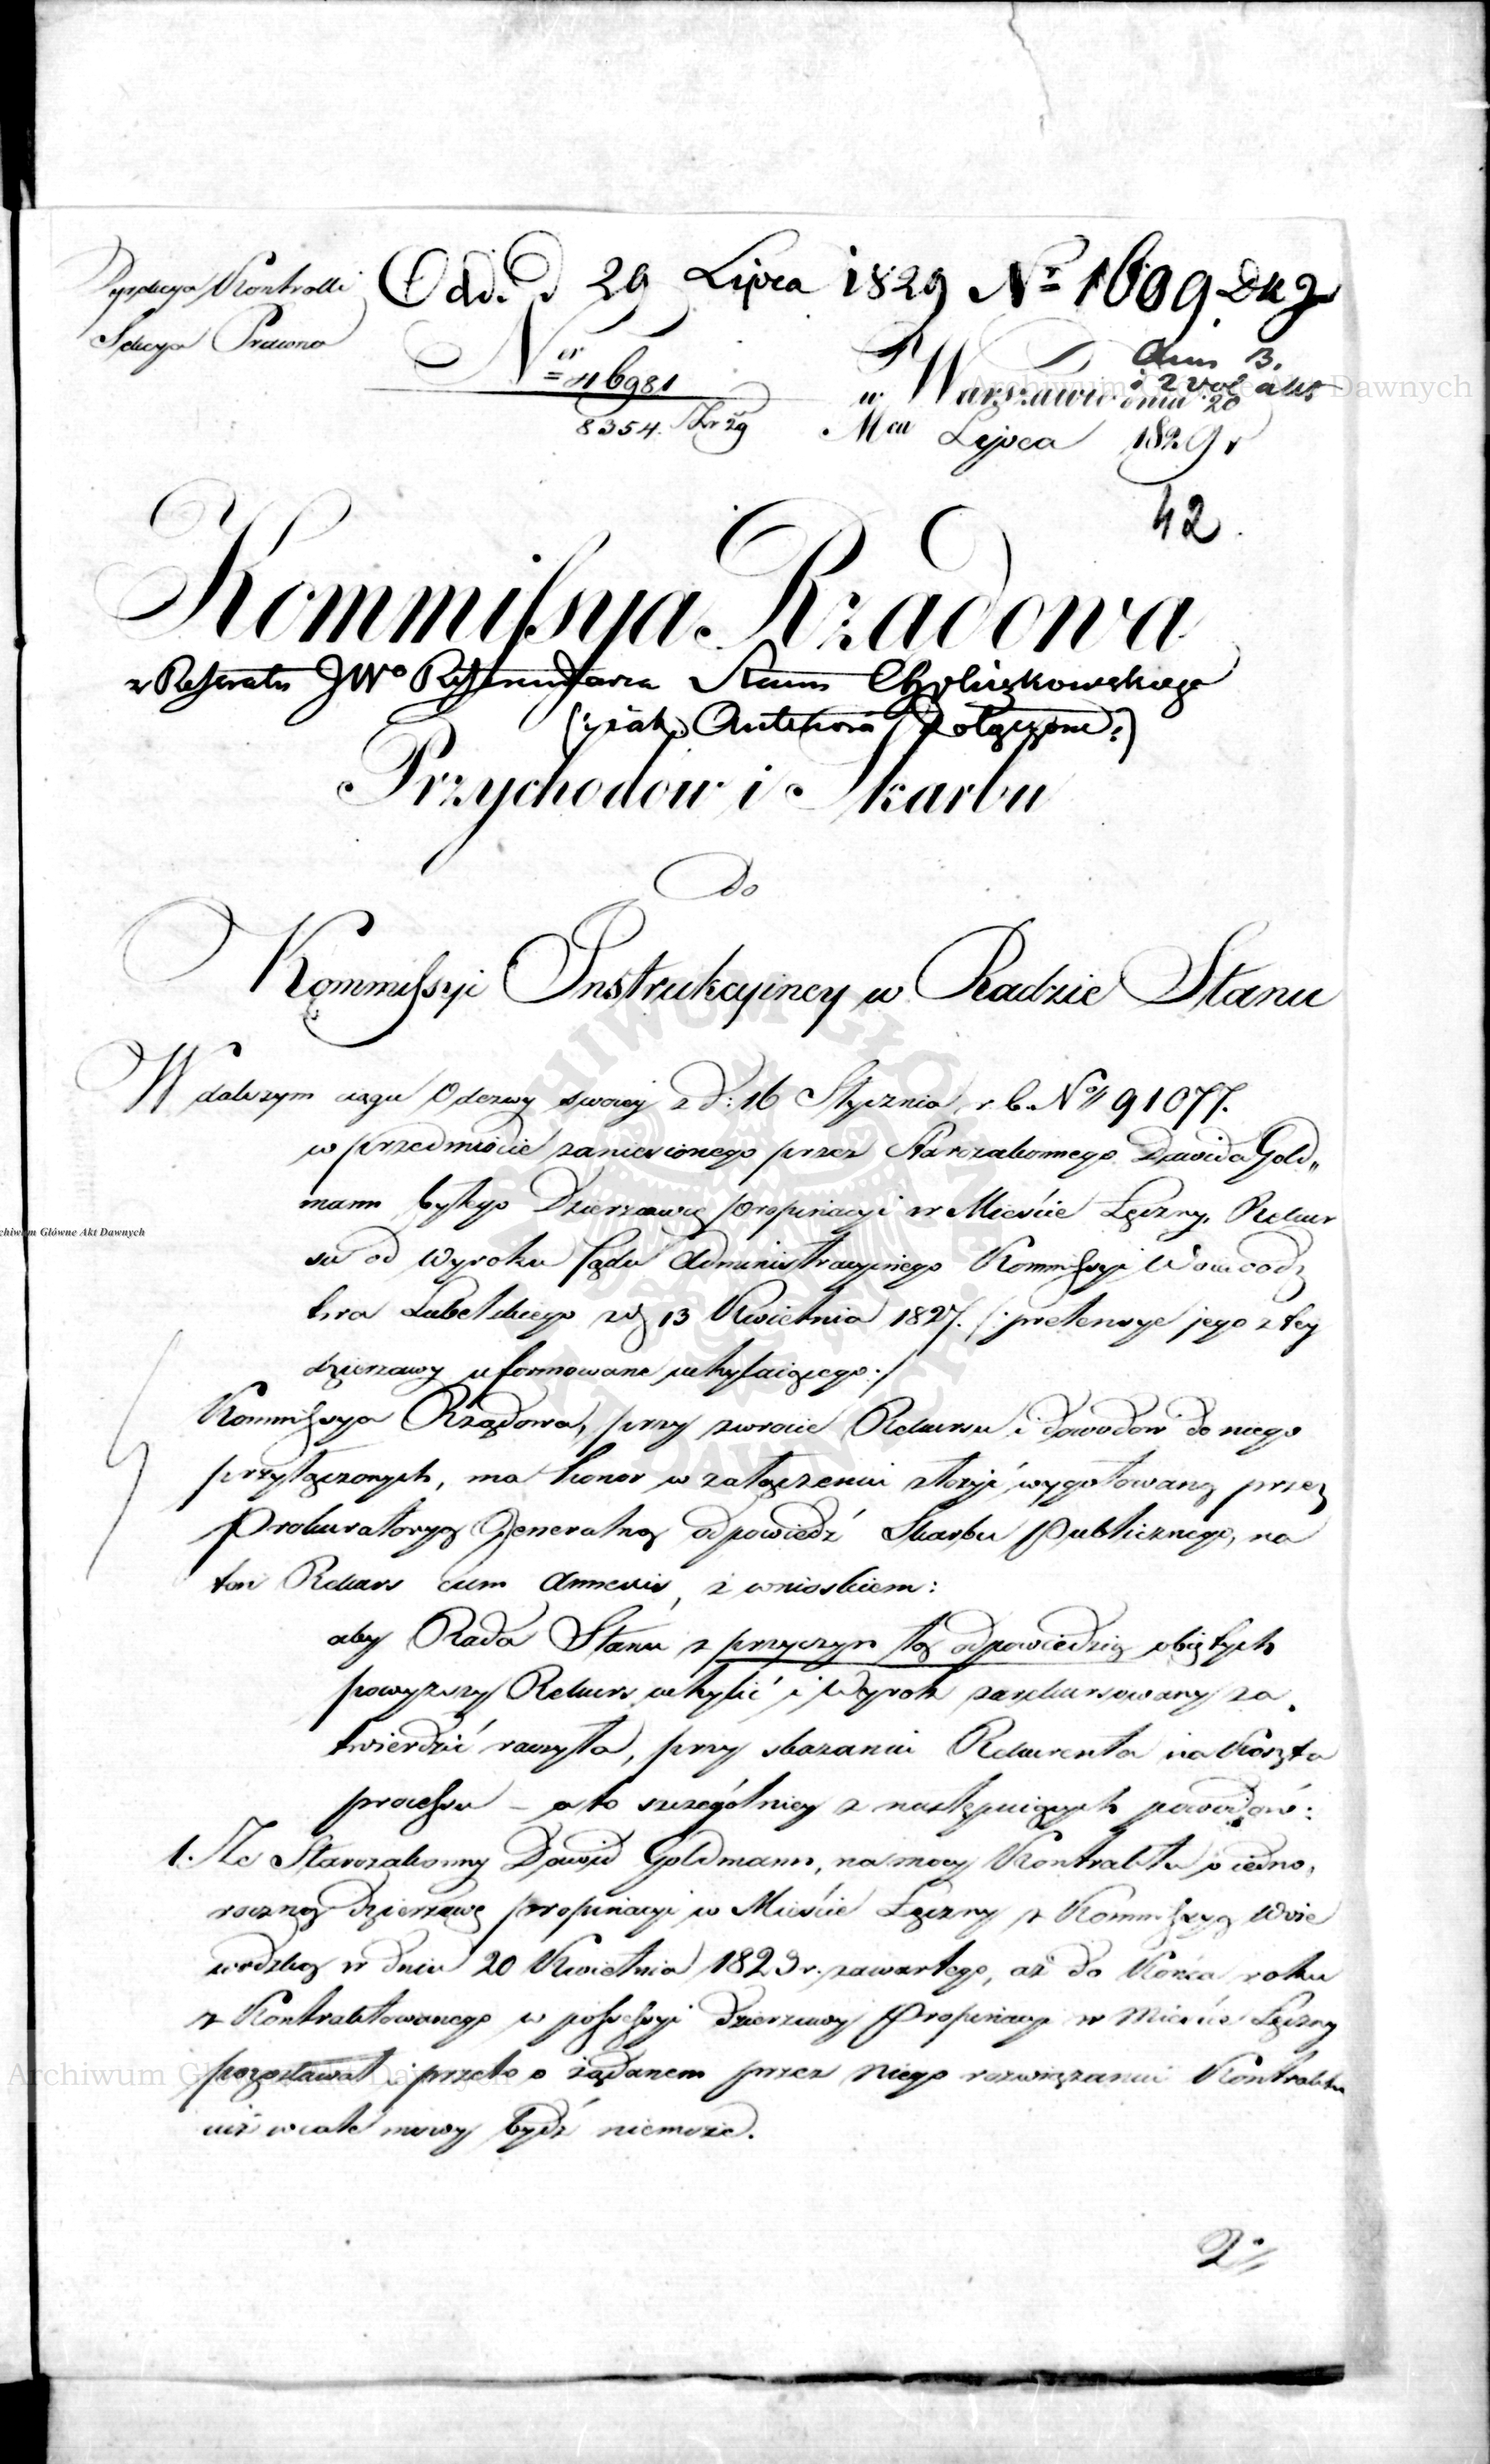 Dyrekcya Kontrolli
Sekcya Prawna
Odd. d 29 Lipca 1829 Nr 1609 Dkg
Nr 46981
8354.
Ann B.
i 2 vol akt
w Warszawie dnia 20
Mca Lipca 1829 r
42.
Kommissyia Rządowa
z Referatu JWo Referendarza Stanu
(: jak Antekora dołączone :)
Przychodów i Skarbu
Do
Kommissyi Instrukcyiney w Radzie Stanu
W dalszym ciągu Odezwy swoiey z d: 16 Stycznia r. b. No 91077.
w przedmiocie zaniesionego przez Starozakonnego Dawida Gold„
mann byłego Dzierzawcę propinacyi w Mieście Łęczny, Rekur
su od Wyroku Sądu Administracyinego Kommissyi Woiewodz
twa Lubelskiego z d 13 Kwietnia 1827. /: pretensye jego z tey
dzierzawy uformowane uchylaiącego :/
Kommissya Rządowa, przy zwrocie Rekursu i dowodów do niego
przyłączonych, ma honor w załączeniu złożyć wygotowaną przez
Prokuratoryą Generalną odpowiedź Skarbu Publicznego, na
ten Rekurs cum Annexis, z wnioskiem:
aby Rada Stanu z przyczyn tą odpowiedzią obiętych
powyższy Rekurs uchylić i Wyrok zarekursowany za„
twierdzić raczyła, przy skazaniu Rekurenta na Koszta
processu – a to szczególniey z następuiących powodów:
1. Ze Starozakonny Dawid Goldmann, na mocy Kontraktu o iedno„
roczną dzierzawę propinacyi w Mieście Łęczny z Kommissyą Woie
wodzką w dniu 20 Kwietnia 1823 r. zawartego, aż do Końca roku
z Kontraktowanego w possessyi dzierzawy Propinacyi w Mieście Łęczny
pozostawał i przeto o żądanem przez niego rozwiązaniu Kontraktu
iuż wcale mowy bydź niemoże.
2o//
Archiwum Główne Akt Dawnych